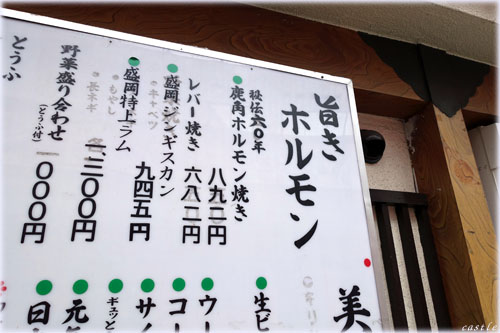 旨き
ホルモン
秘伝六〇年
鹿角ホルモン焼き
レバー焼き
盛岡ジンギスカン
・キャベツ
盛岡特上ラム 九四五円
・もやし
・長ネギ
野菜盛り合わせ(とうふ付)
一、三〇〇円
とうふ
美
生ビ
ウー
コー
サイ
ギュッと
元
日
castle